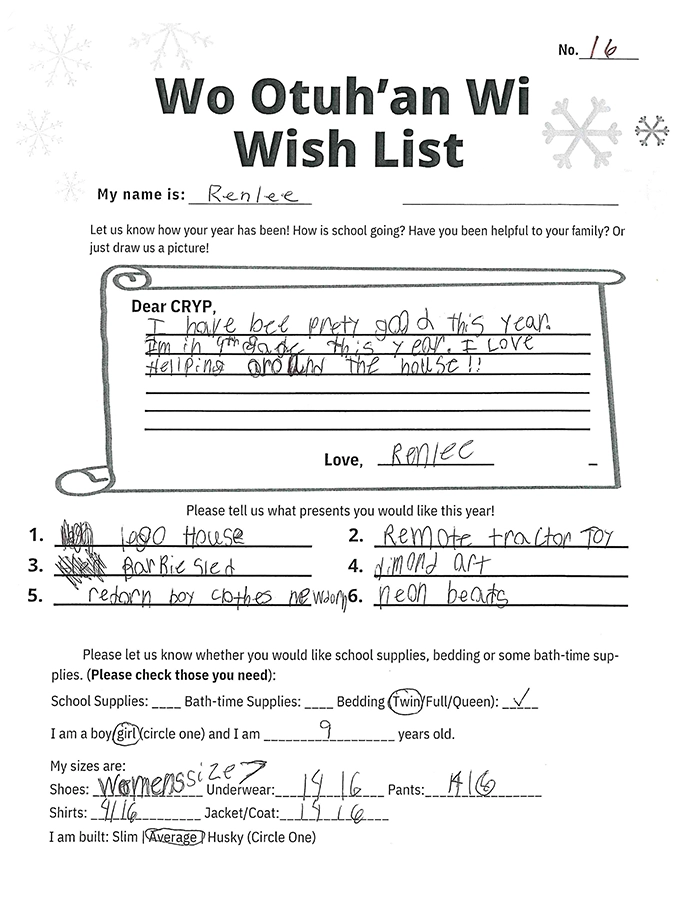 No. 16
Wo Otuh'an Wi
Wish List
My name is: Renlee
Let us know how your year has been! How is school going? Have you been helpful to your family? Or
just draw us a picture!
Dear CRYP,
I have bee prety good this year.
Im in 4th gade this year. I Love
Hellping around the house!!
Love, Renlee
Please tell us what presents you would like this year!
1. lego House 2. Remote tractor Toy
3. Barkie sled 4. dimond art
5. reborn boy clothes newborn 6. neon beads
Please let us know whether you would like school supplies, bedding or some bath-time sup-
plies. (Please check those you need):
School Supplies: ____ Bath-time Supplies: ____ Bedding (Twin/Full/Queen): ✓
I am a boy/girl (circle one) and I am 9 years old.
My sizes are:
Shoes: Womens size 7 Underwear: 14 16 Pants: 14/16
Shirts: 14/16 Jacket/Coat: 14 16
I am built: Slim | Average | Husky (Circle One)